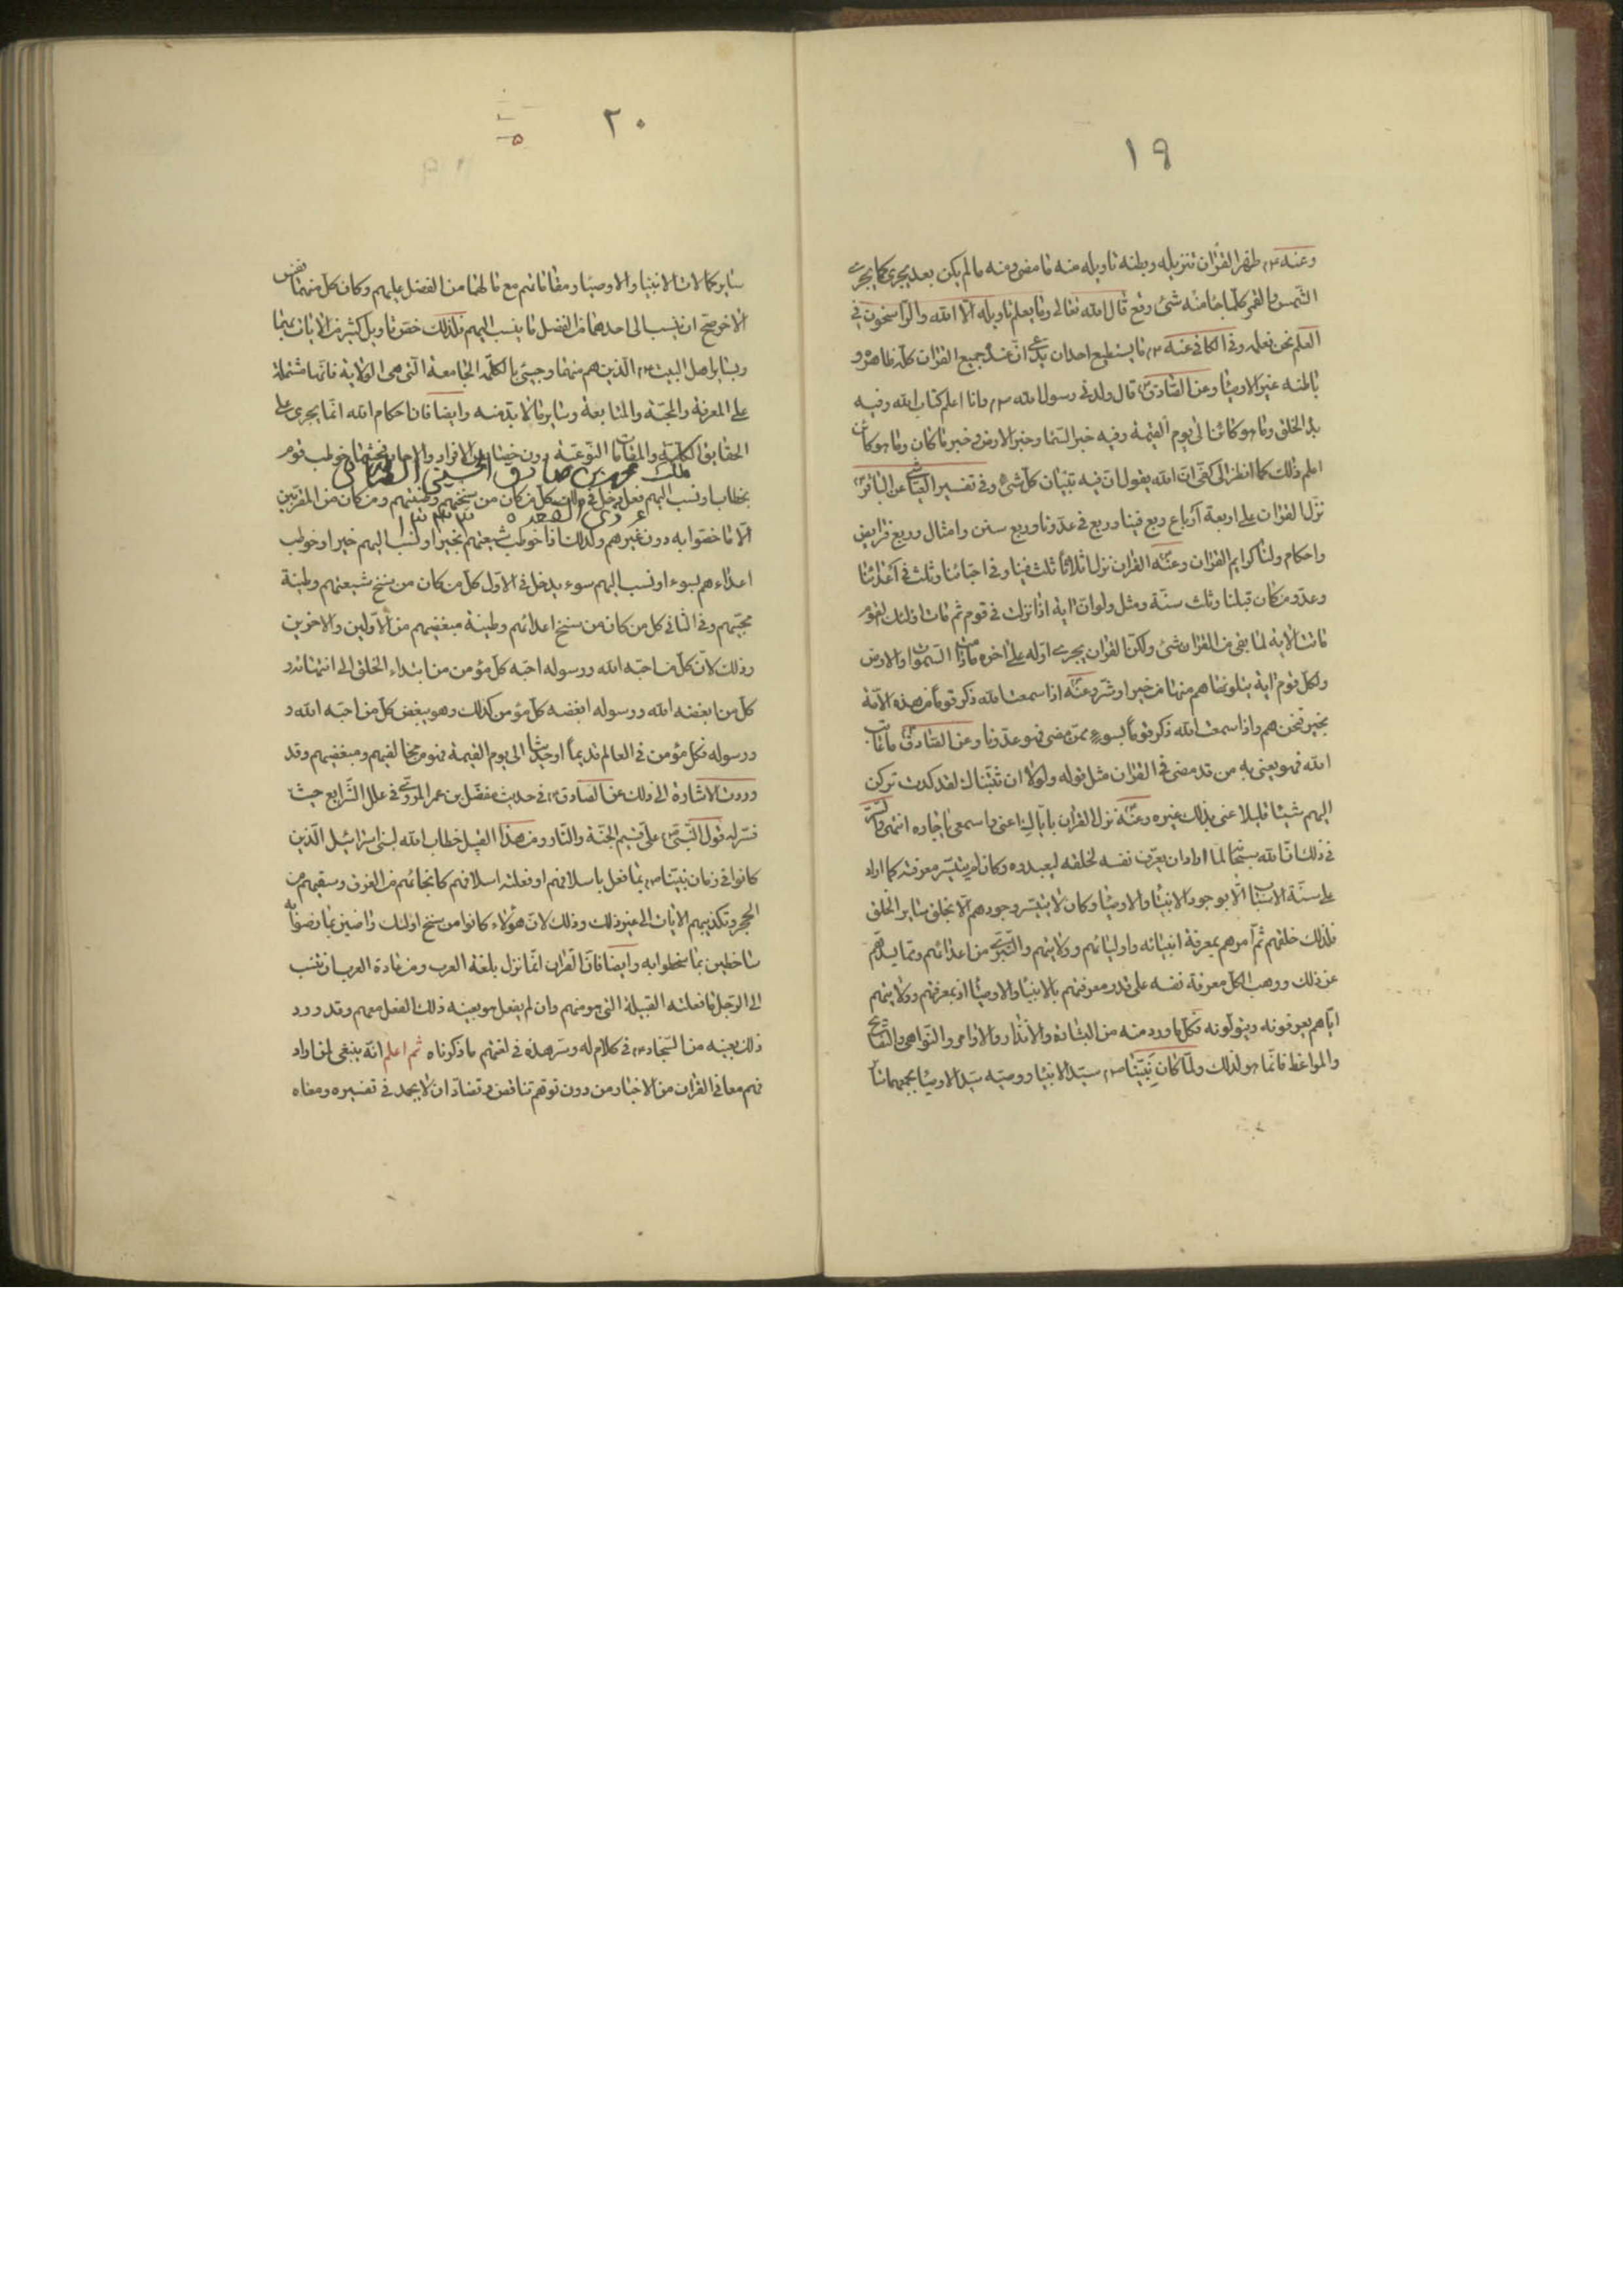 ١٩
وعنه ع ظهر القرآن تنزيله وبطنه تاويله منه ما مضى ومنه ما لم يكن بعد يجرى كما يجرى
الشمس والقمر كلما جاء منه شئ وقع قال الله تعالى وما يعلم تاويله الا الله والراسخون فى
العلم نحن نعلمه وفى الكافى عنه ع ما يستطيع احد ان يدعى ان عنده جميع القران كله ظاهره و
باطنه غير الاوصياء وعن الصادق ع قال ولدنى رسول الله ص وانا اعلم كتاب الله وفيه
بدؤ الخلق وما هو كائن الى يوم القيمة وفيه خبر السماء وخبر الارض وخبر ما كان وما هو كائن
اعلم ذلك كما انظر الى كفى ان الله يقول ان فيه تبيان كل شئ وفى تفسير العياشى عن الباقر ع
نزل القران على اربعة ارباع ربع فينا وربع فى عدونا وربع سنن وامثال وربع فرايض
واحكام ولنا كرايم القران وعنه ع القران نزل اثلاثا ثلث فينا وفى احبائنا وثلث فى اعدائنا
وعدو من كان قبلنا وثلث سنة ومثل ولو ان اية اذا نزلت فى قوم ثم مات اولئك القوم
ماتت الاية لما بقى من القران شئ ولكن القران يجرى اوله على اخره ما دامت السموات والارض
ولكل قوم اية يتلونها هم منها من خير او شر وعنه ع اذا سمعت الله ذكر قوما من هذه الامة
بخير فنحن هم واذا سمعت الله ذكر قوما بسوء ممن مضى فهو عدونا وعن الصادق ع ما عاتب
الله فهو يعنى به من قد مضى فى القران مثل قوله ولولا ان ثبتناك لقد كدت تركن
اليهم شيئا قليلا عنى بذلك غيره وعنه ع نزل القران باياك اعنى واسمعى يا جاره انتهى والسر
فى ذلك ان الله سبحانه لما اراد ان يعرف نفسه لخلقه ليعبدوه وكان لم يتيسر معرفته كما اراد
على سنة الاسباب الا بوجود الانبياء والاوصياء وكان لا يتيسر وجودهم الا بخلق ساير الخلق
فلذلك خلقهم ثم امرهم بمعرفة انبيائه واوليائهم وولايتهم والتبرى من اعدائهم ومما يصدهم
عن ذلك ووهب الكل معرفة نفسه على قدر معرفتهم بالانبياء والاوصياء اذ بمعرفتهم وولايتهم
اياهم يعرفونه ويتولونه فكل ما ورد منه من البشارة والانذار والاوامر والنواهى والنصايح
والمواعظ فانما هو لذلك ولما كان نبينا ص سيد الانبياء ووصيه سيد الاوصياء بجمعهما
٢٠
ساير كمالات الانبياء والاوصياء ومقاماتهم مع ما لهما من الفضل عليهم وكان كل منهما نفس
الاخر صح ان ينسب الى احدهما من الفضل ما ينسب اليهم فلذلك خص تاويل كثير من الايات بهما
وبساير اهل البيت ع الذين هم منهما وجيئ بالكلمة الجامعة التى هى الولاية فانها مشتملة
على المعرفة والمحبة والمتابعة وساير ما لا بد منه وايضا فان احكام الله انما يجرى على
الحقايق الكلية والمقامات النوعية دون خصايص الافراد والاحاد فحيثما خوطب قوم
ملك محمد بن صادق الحسينى الطباطبائى
بخطاب او نسب اليهم فعل دخل فى ذلك كل من كان من سنخهم وطينتهم ومن كان من المقربين
ذى القعده
الا ما خصوا به دون غيرهم وكذلك اذا خوطب شيعتهم بخير او نسب اليهم خير او خوطب
اعداءهم بسوء او نسب اليهم سوء يدخل فى الاول كل من كان من سنخ شيعتهم وطينة
محبيهم وفى الثانى كل من كان من سنخ اعدائهم وطينة مبغضيهم من الاولين والاخرين
وذلك لان كل من احبه الله ورسوله احبه كل مؤمن من ابتداء الخلق الى انتهائه و
كل من ابغضه الله ورسوله ابغضه كل مؤمن كذلك وهو يبغض كل من احبه الله و
ورسوله فكل مؤمن فى العالم قديما او حديثا الى يوم القيمة فهو من مخالفيهم ومبغضيهم وقد
وردت الاشارة الى ذلك عن الصادق ع فى حديث مفضل بن عمر المروى فى علل الشرايع حيث
فسر له قول النبى ص على قسيم الجنة والنار ومن هذا القبيل خطاب الله لبنى اسرائيل الذين
كانوا فى زمان نبينا ص بما فعل باسلافهم او فعلته اسلافهم كانجائهم من الغرق وسقيهم من
الحجر وتكذيبهم الايات الى غير ذلك وذلك لان هؤلاء كانوا من سنخ اولئك راضين بما رضوا به
ساخطين بما سخطوا به وايضا فان القران انما نزل بلغة العرب ومن عادة العرب ان تنسب
الى الرجل ما فعلته القبيلة التى هو منهم وان لم يفعل هو بعينه ذلك الفعل معهم وقد ورد
ذلك بعينه من السجاد ع فى كلام له وسر هذه فى لغتهم ما ذكرناه ثم اعلم انه ينبغى لمن اراد
فهم معانى القران من الاخبار من دون توهم تناقض وتضاد ان لا يجمد فى تفسيره ومعناه